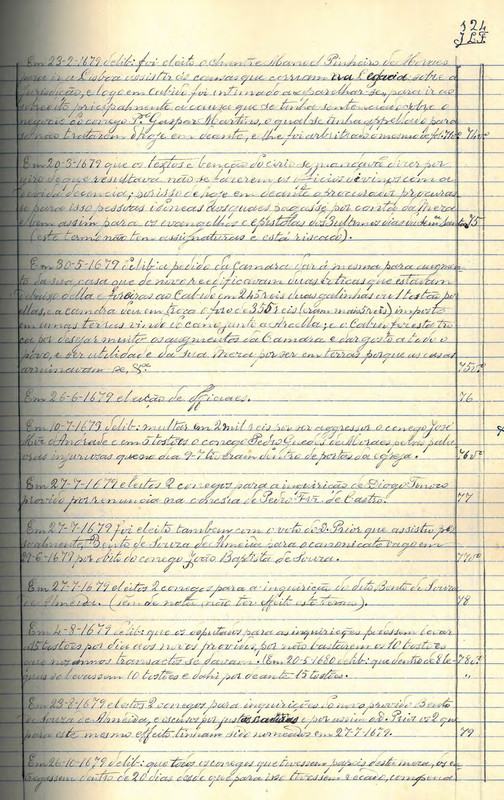 324
J.L.F.
Em 23-2-1679 delib: foi eleito o chantre Manoel Pinheiro de Moraes
para ir a Lisboa assistir ás causas que corriam na Legacia sobre a
jurisdição, e logo em Cabido foi intimado a aparelhar-se, para ir ao
sobredito principalmente á causa que se tinha sentenciado sobre o
negocio do conego Pº Gaspar Martins, o qual se tinha appellado para
se não tratarem de hoje em deante, e lhe foi arbitrado o mesmo de fl. 74vº
Em 20-3-1679 que os textos e benção do cirio se mandava dizer por
giro de que resultava não se fazerem os officios divinos com a
devida decencia; por isso de hoje em deante o procurador procurasse
para isso pessoas idoneas ás quaes pagasse por conta da Meza
e bem assim para os evangelhos e epistolas dos 3 ultimos dias da semª Santa 75
(este termo não tem assignaturas e está riscado).
Em 30-5-1679 delib: a pedido da Camara dar á mesma para augmento
da sua casa que de novo reedificavam duas boticas que estavam
debaixo della e foreiras ao Cabido em 245 reis duas galinhas ou 1 testão por
ellas, e a camara deu em troca o foro de 355 reis (eram mais reis) imposto
em umas terras vindo do cano, junto á Arcella; e o Cabido fez esta troca
por desejar muito os augmentos da Camara e dar gosto a todo o
povo, e ser utilidade da sua Meza por ser em terras porque as casas
arruinavam-se, &ª. 75vº
Em 26-6-1679 eleição de officiaes. 76
Em 10-7-1679 delib: multar em 2 mil reis por ser aggressor o conego José
Mix d'Andrade e em 5 tostões o conego Pedro Guedes de Moraes pelas palavras
injuriosas que no dia 9-7 tiveram dentro de portas da egreja. 76vº
Em 27-7-1679 eleitos 2 conegos para a inquirição de Diogo
provido por renuncia na conesia de Pedro Frz de Castro. 77
Em 27-7-1679 foi eleito tambem com o voto do D. Prior que assistiu pessoalmente,
Bento de Souza de Almeida para o canonicato vago em
27-6-1679 por obito do conego João Baptista de Souza. 77vº
Em 27-7-1679 eleitos 2 conegos para a inquirição do dito Bento de Souza
de Almeida. (tem de nota: não teve effeito este termo). 78
Em 4-8-1679 delib: que os deputados para as inquirições podessem levar
15 tostões por dia aos novos providos, por não bastarem os 10 tostões
que nos annos transactos se davam. (Em 20-5-1680 delib: que dentro de 8 leguas 78vº
só levassem 10 tostões e dahi por deante 15 tostões. "
Em 23-8-1679 eleitos 2 conegos para inquirições do novo provido Bento
de Souza de Almeida, e escusos por justas causas e por assim o D. Prior os 2 que
para este mesmo effeito tinham sido nomeados em 27-7-1679. 79
Em 26-10-1679 delib: que todos os conegos que tivessem papeis desta meza, os entregassem
dentro de 20 dias desde que para isso tivessem recado, com pena